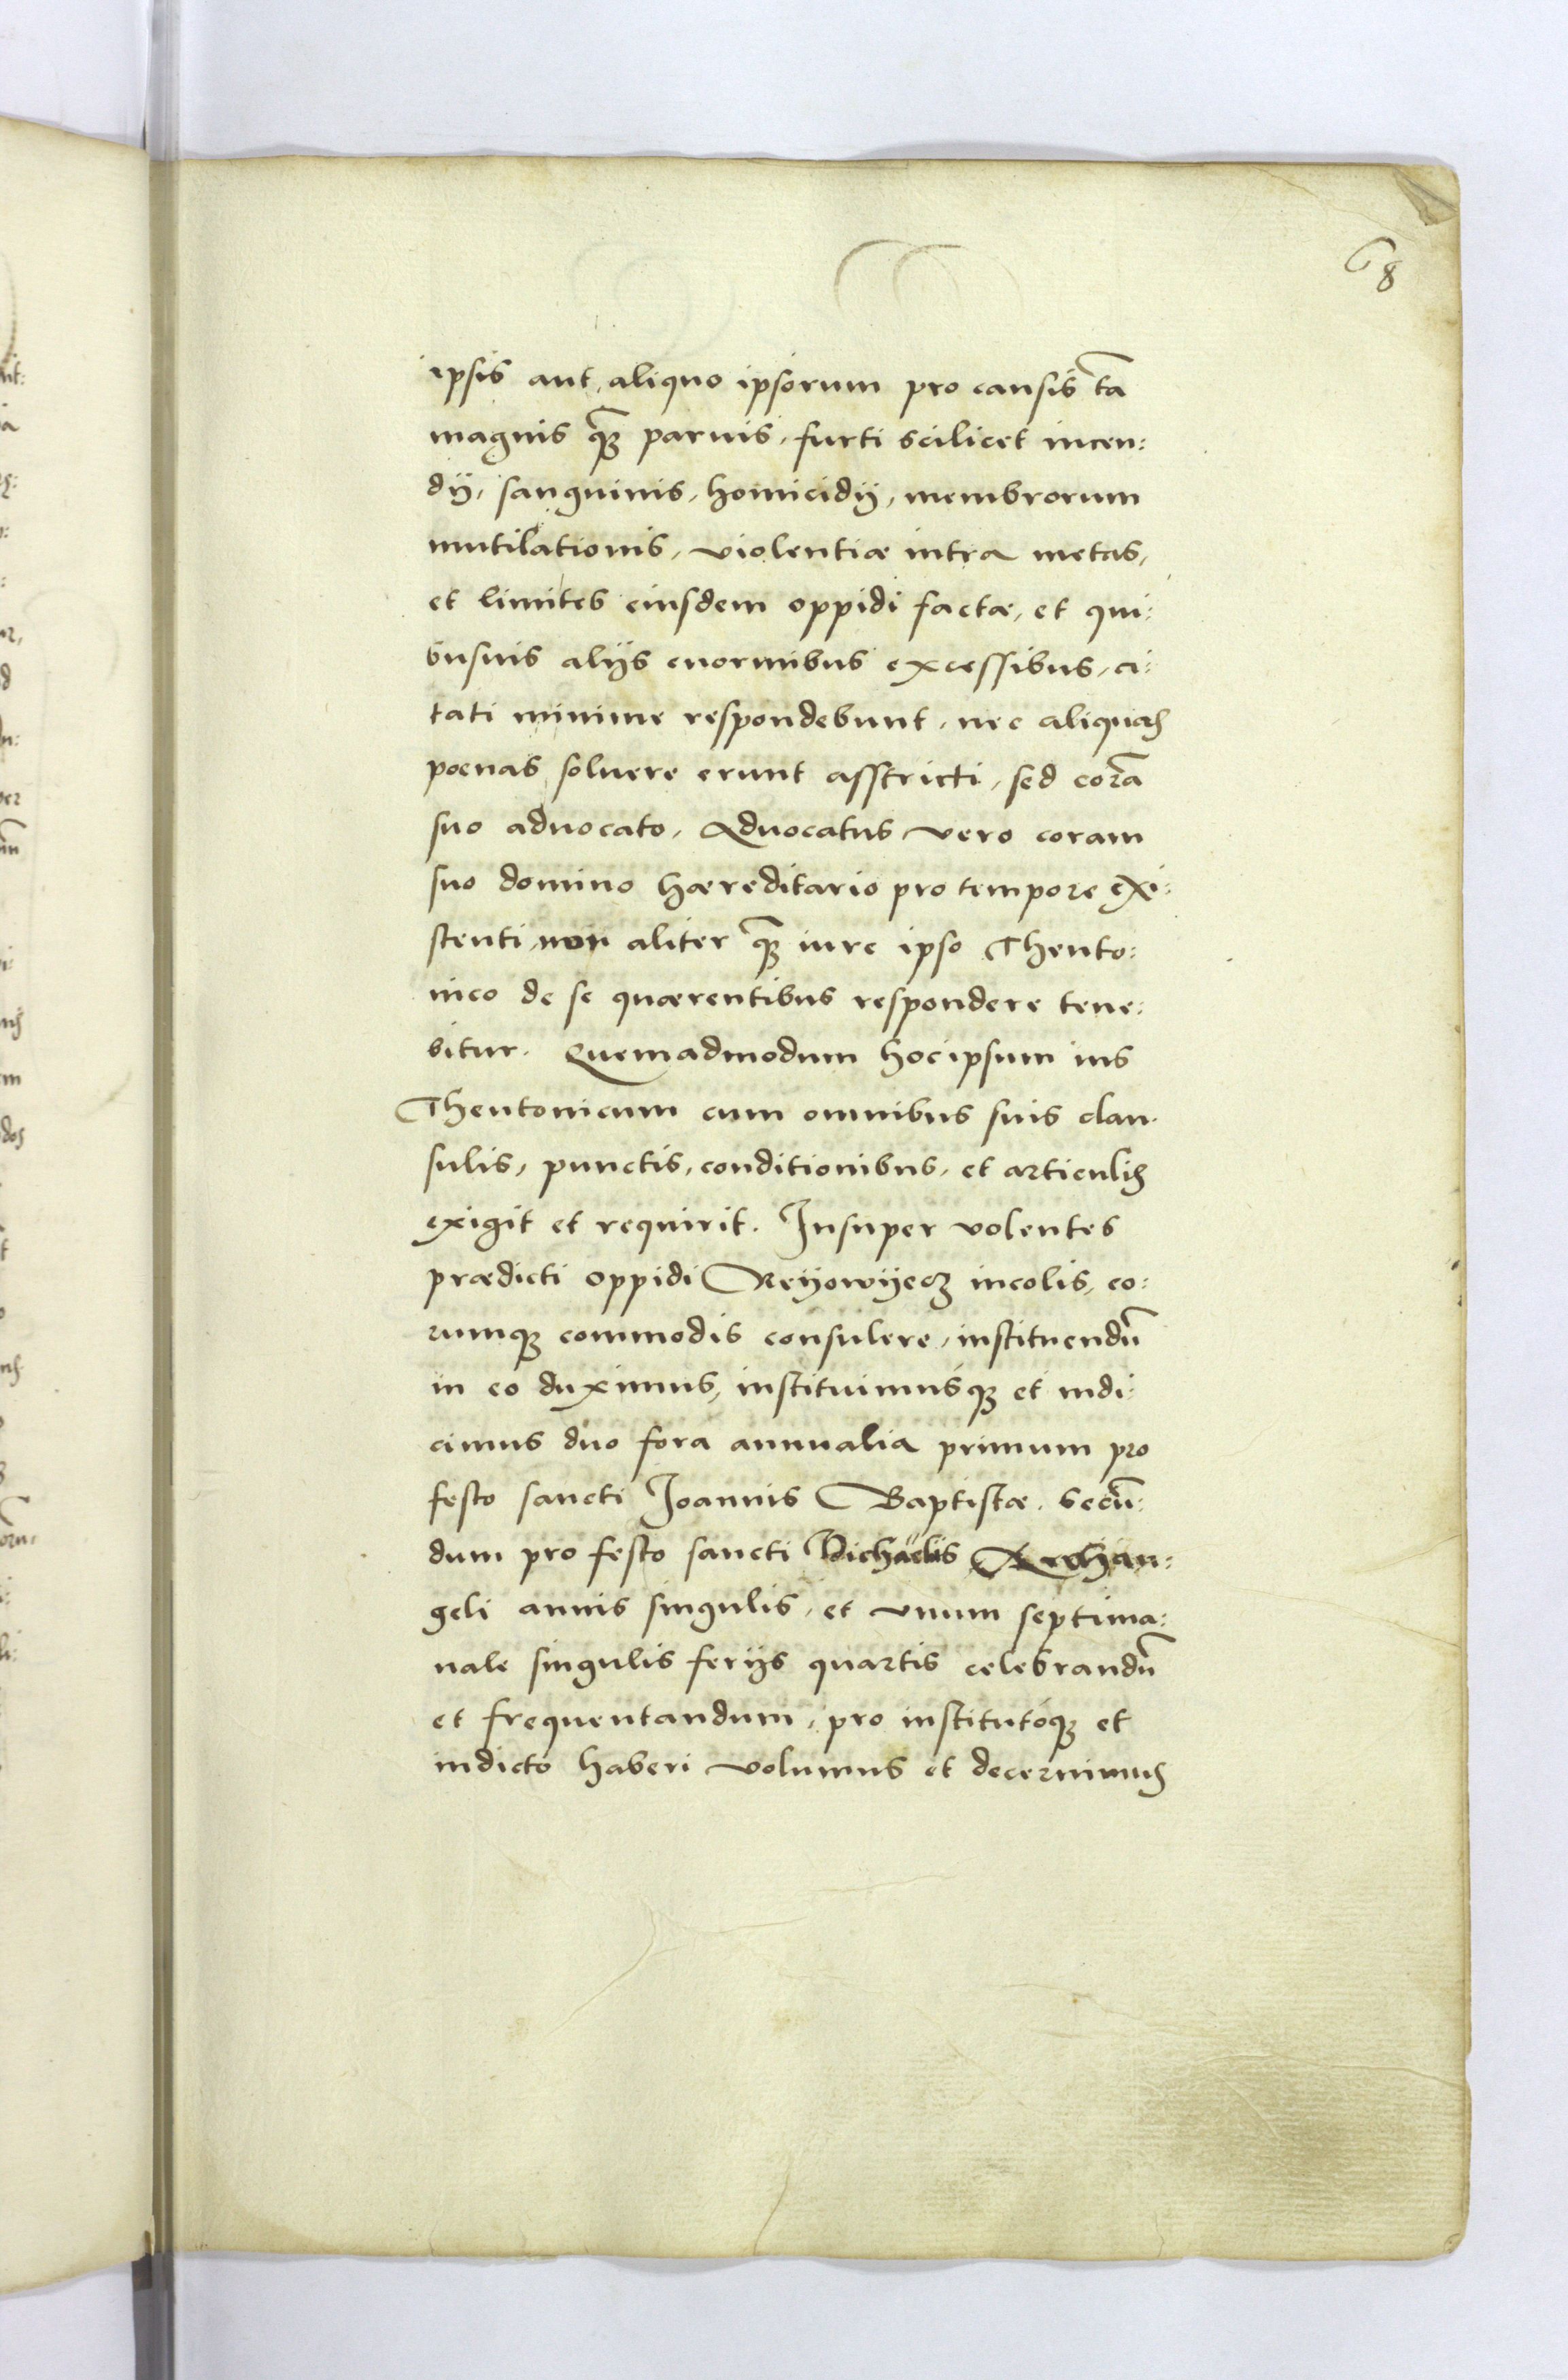 68
ipsis aut aliquo ipsorum pro causis tã
magnis quã parvis, furti scilicet incen:
dÿ, sanguinis, homicidÿ, membrorum
mutilationis, violentiæ intra metas,
et limites eiusdem oppidi factæ, et qui:
busuis alÿs enormibus excessibus, ci:
tati minime respondebunt, nec aliquas
poenas soluere erunt asstricti, sed corã
suo aduocato, Aduocatus vero coram
suo domino hæreditario pro tempore exi:
stenti, non aliter quã iure ipso Theuto:
nico de se quærentibus respondere tene:
bitur. Quemadmodum hoc ipsum ius
Theutonicum cum omnibus suis clau:
sulis, punctis, conditionibus, et articulis
exigit et requirit. Insuper volentes
prædicti oppidi Reÿowÿecz incolis, eo:
rumq3 commodis consulere, instituendũ
in eo duximus, instituimusq3 et indi:
cimus duo fora annualia primum pro
festo sancti Joannis Baptistæ. Secũ:
dum pro festo sancti Michaëlis Archan:
geli annis singulis, et vnum septima:
nale singulis ferÿs quartis celebrandũ
et frequentandum, pro institutoq3 et
indicto haberi volumus et decernimus